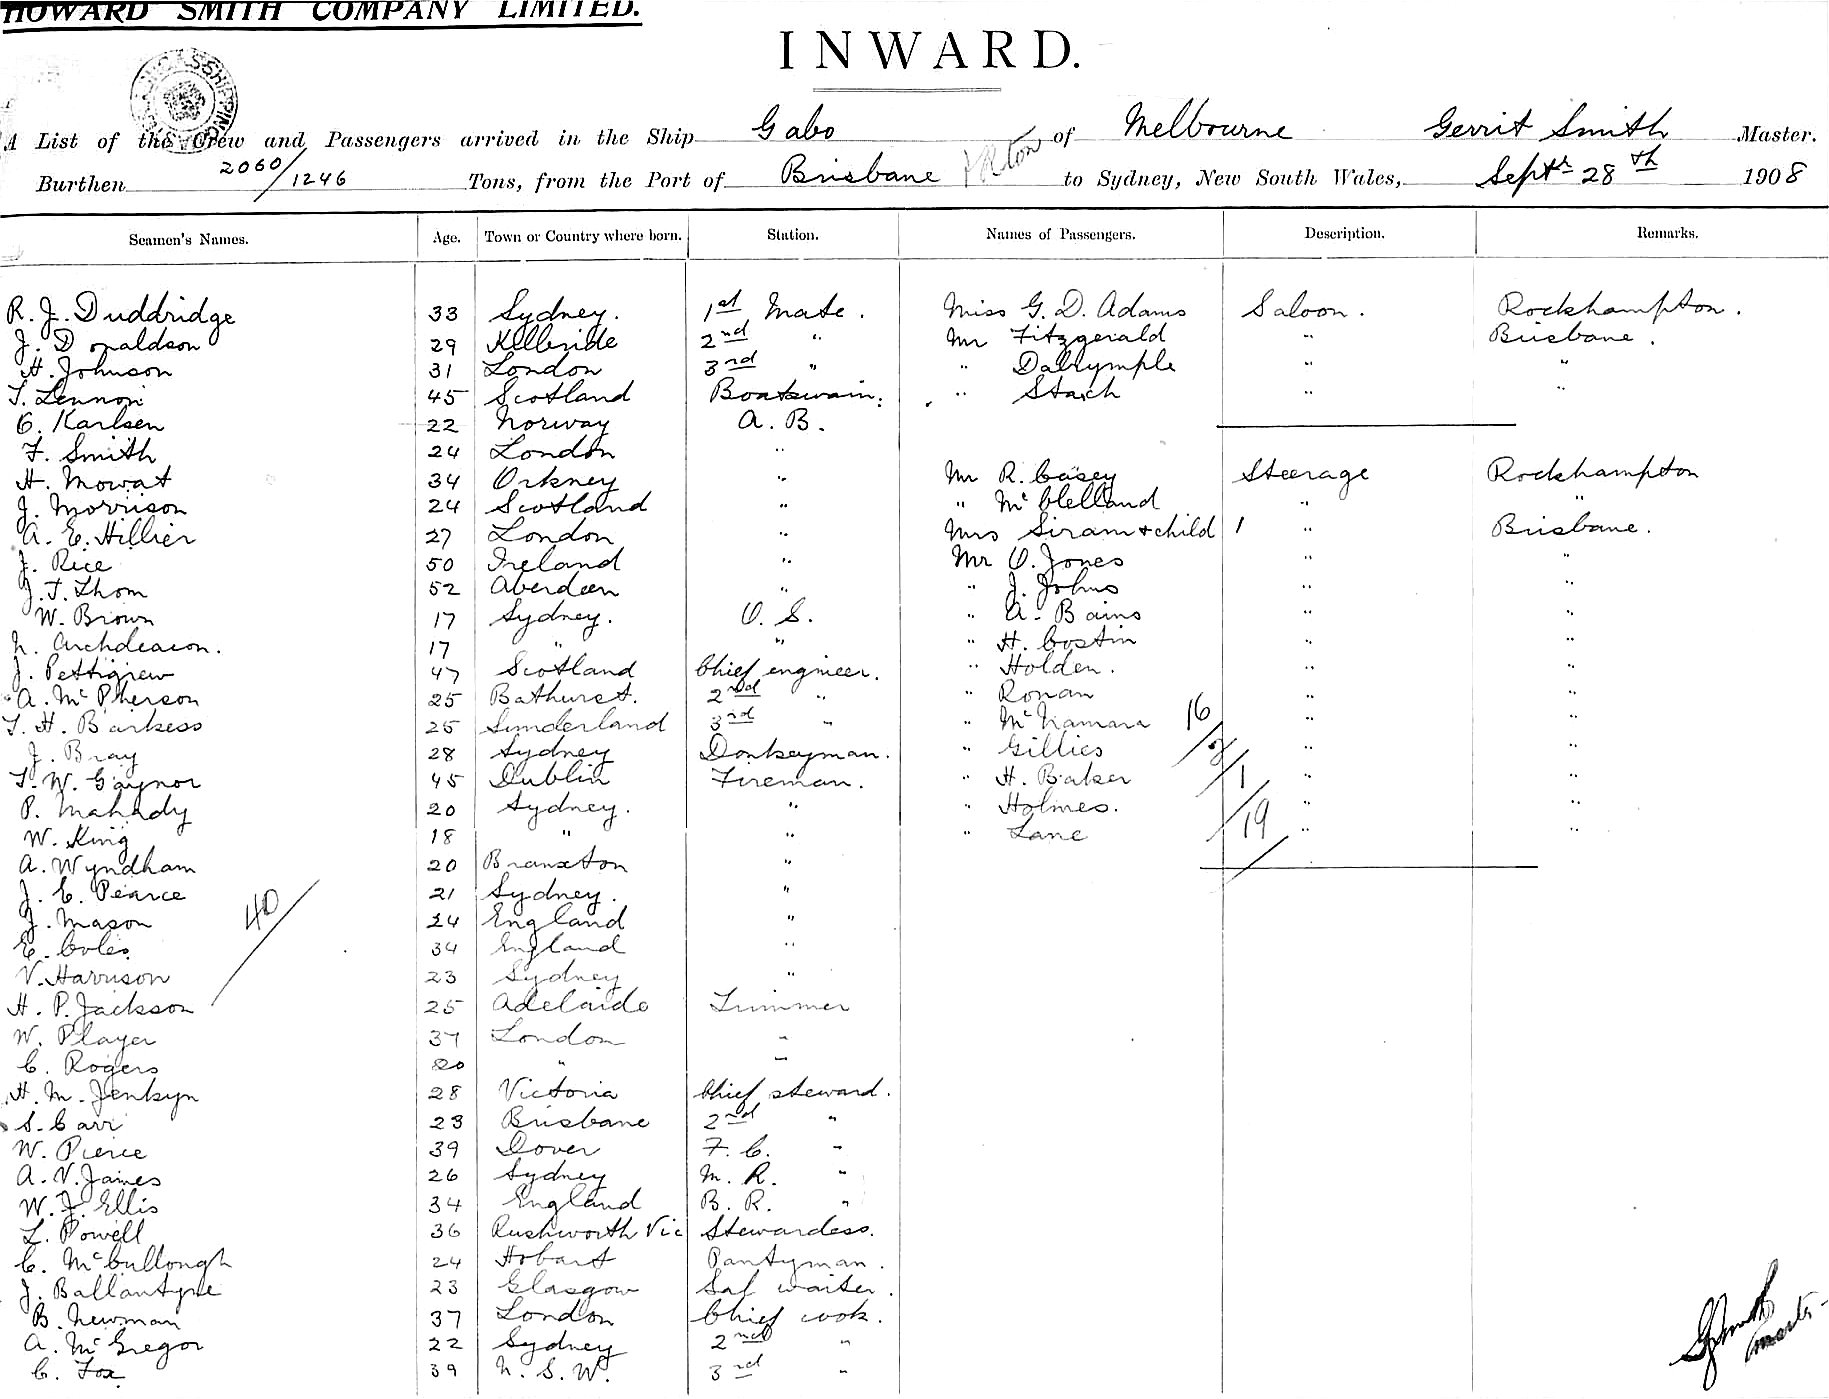 HOWARD SMITH COMPANY LIMITED.
INWARD.
A List of the Crew and Passengers arrived in the Ship Gabo of Melbourne Gerrit Smith Master.
Burthen 2060/1246 Tons, from the Port of Brisbane to Sydney, New South Wales, Septr 28th 1908
Seamen's Names. Age. Town or Country where born. Station. Names of Passengers. Description. Remarks.
R. J. Duddridge 33 Sydney. 1st Mate. Miss G. D. Adams Saloon. Rockhampton.
J. Donaldson 29 Kilbride 2nd " Mr Fitzgerald " Brisbane.
H. Johnson 31 London 3rd " " Dalrymple " "
T. Lennon 45 Scotland Boatswain. " Stach " "
C. Karlsen 22 Norway A. B.
F. Smith 24 London "
H. Mowat 34 Orkney " Mr R. Casey Steerage Rockhampton
J. Morrison 24 Scotland " " McClelland " "
A. E. Hillier 27 London " Mrs Siram + child 1 " Brisbane.
J. Rice 50 Ireland " Mr O. Jones " "
J. T. Thom 52 Aberdeen " " J. Johns " "
W. Brown 17 Sydney. O. S. " A. Bains " "
N. Archdeacon. 17 " " " H. Costin " "
J. Pettigrew 47 Scotland Chief engineer. " Holden. " "
A. McPherson 25 Bathurst. 2nd " " Ronan " "
T. H. Barkess 25 Sunderland 3rd " " McNamara 16 " "
J. Bray 28 Sydney Donkeyman. " Gillies /2 " "
T. W. Gaynor 45 Dublin Fireman. " H. Baker /1 " "
P. Mahady 20 Sydney. " " Holmes. /19 " "
W. King 18 " " " Lane " "
A. Wyndham 20 Branxton "
J. C. Pearce 21 Sydney. "
J. Mason 40 24 England "
E. Coles 34 England "
V. Harrison 23 Sydney "
H. P. Jackson 25 Adelaide Trimmer
W. Player 37 London "
C. Rogers 20 " "
H. M. Jenkyn 28 Victoria Chief steward.
S. Carr 23 Brisbane 2nd "
W. Pierce 39 Dover F. C. "
A. V. James 26 Sydney M. R. "
W. J. Ellis 34 England B. R. "
L. Powell 36 Rushworth Vic Stewardess.
C. McCullough 24 Hobart Pantryman.
J. Ballantyne 23 Glasgow Saf waiter.
B. Newman 37 London Chief cook.
A. McGregor 22 Sydney 2nd "
C. Fox 39 N. S. W. 3rd "
G Smith
Master